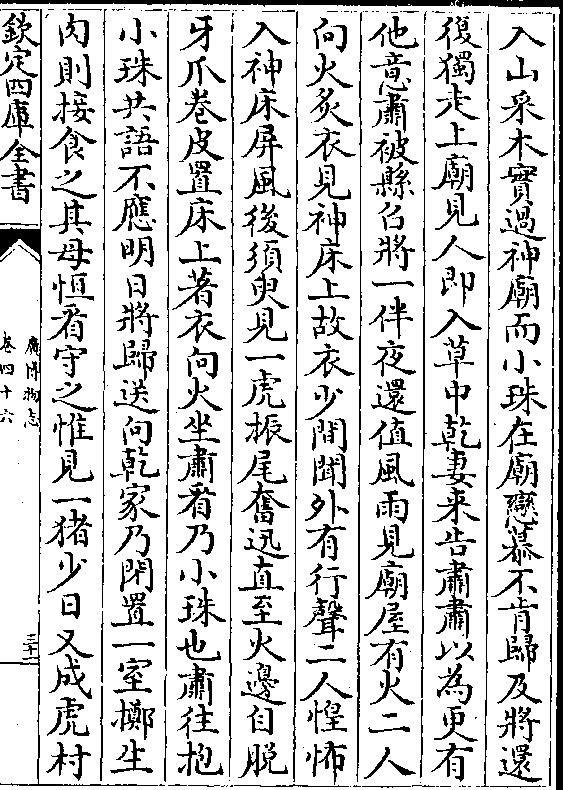 入山采木實過神廟而小珠在廟戀慕不肯歸及將還
復獨走上廟見人即入草中乾妻来告肅肅以為更有
他意肅被縣召將一伴夜還值風雨見廟屋有火二人
向火炙衣見神床上故衣少間聞外有行聲二人惶怖
入神床屏風後須臾見一虎振尾奮迅直至火邊自脱
牙爪卷皮置床上著衣向火坐肅看乃小珠也肅往抱
小珠共語不應明日將歸送向乾家乃閉置一室擲生
肉則接食之其母恒看守之惟見一猪少日又成虎村
欽定四庫全書
廣博物志
卷四十六
三十二